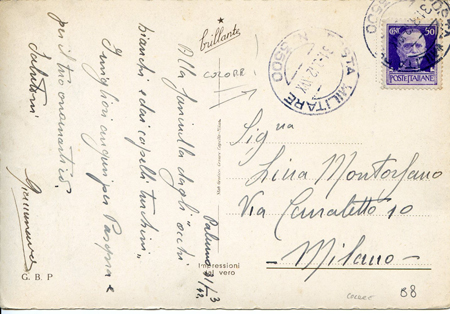 brillante
COLORE
Palermo 31/3 42
Alla fanciulla dagli "occhi
bianchi e dai capelli turchini"
I migliori auguri per Pasqua e
per il tuo onomastico.
Saluti
G. B. P
Impressioni
dal vero
POSTA MILITARE
N. 5500
CENT 50
POSTE ITALIANE
Sig.na
Lina Montorfano
Via Canaletto 10
Milano
88